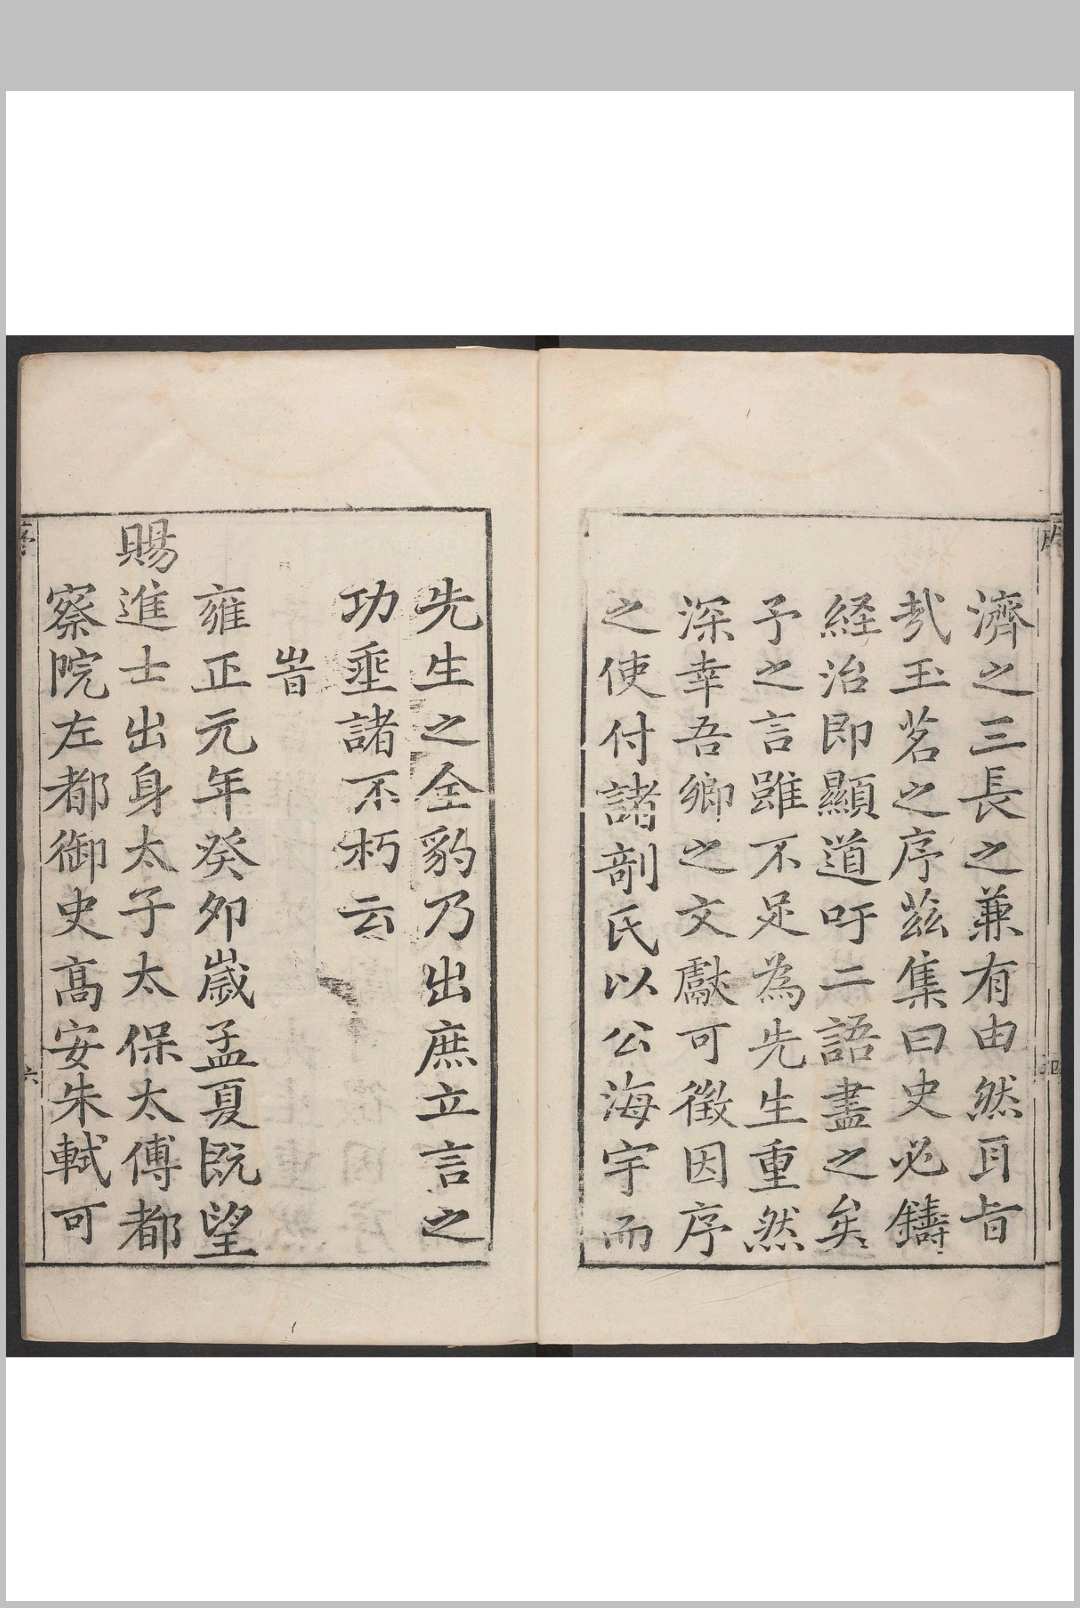 濟之三長之兼有由然耳旨
㢤玉茗之序茲集曰史必鑄
経治即顯道吁二語盡之矣
予之言雖不足為先生重然
深幸吾鄉之文獻可徵因序
之使付諸剞氏以公海宇而
先生之全豹乃出庶立言之
功垂諸不朽云
旹
雍正元年癸卯歲孟夏既望
賜進士出身太子太保太傅都
察院左都御史髙安朱軾可
六